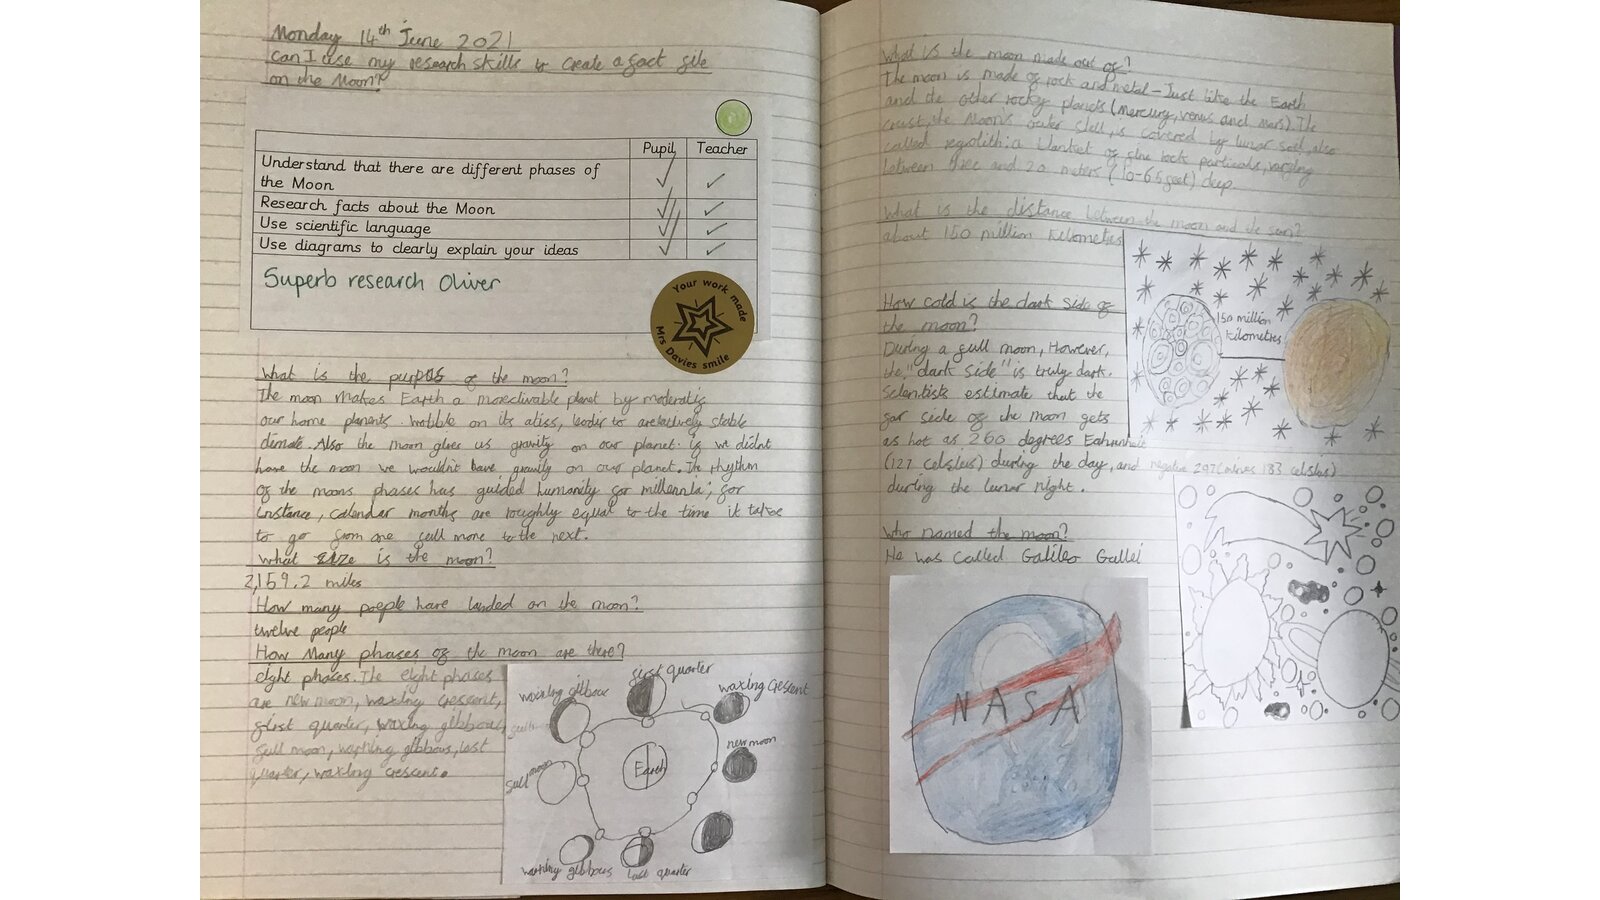 Monday 14th June 2021
can I use my research skills to create a fact file
on the Moon?
Pupil Teacher
Understand that there are different phases of
the Moon
Research facts about the Moon
Use scientific language
Use diagrams to clearly explain your ideas
Superb research Oliver
Your work made
Mrs Davies smile
What is the purpos of the moon?
The moon makes Earth a moreclivable planet by moderatig
our home planents wobble on its atiss, leadir to arelatively stable
climate. Also the moon gives us gravity on our planet. if we didnt
have the moon we wouldn't have gravity on our planet. The rhythm
of the moons phases has guided humanity for millennia; for
instance, calendar months are roughly equal to the time it takes
to go from one full more to the next.
What size is the moon?
2,159.2 miles
How many poeple have landed on the moon?
twelve people
How Many phases of the moon are there?
eight phases. The eight phases
are new moon, waxing crescent,
first quarter, waxing gibbous,
full moon, warning gibbous, last
quarter, waxing crescent.
first quarter
waxing gibbous
waxing Crescent
new moon
Earth
full moon
warning gibbous
last quarter
What is the moon made out of?
The moon is made of rock and metal - Just like the Earth
and the other rocky planets (mercury, venus and mars). The
crust, the Moons outer shell, is covered by lunar soil, also
called regolith: a blanket of fine rock particals, varying
between three and 20 meters (10-65 feet) deep.
What is the distance between the moon and the sun?
about 150 million kilometres
150 million
kilometres
How cold is the dark side of
the moon?
During a full moon, However,
the "dark side" is truly dark.
Scientists estimate that the
far side of the moon gets
as hot as 260 degrees Fahrenheit
(127 celsius) during the day, and negative 297 (minus 183 celsius)
during the lunar night.
Who named the moon?
He was called Galileo Gallei
NASA